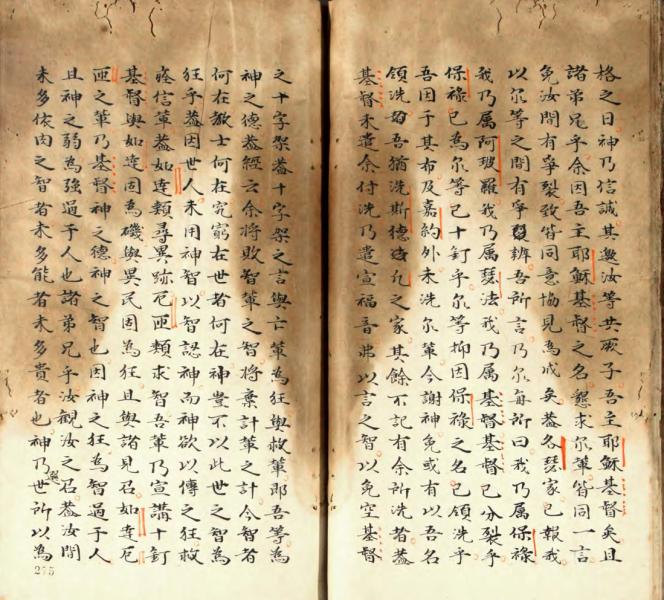 格之日神乃信誠其邀汝等共厥子吾主耶穌基督矣且
諸弟兄乎余因吾主耶穌基督之名懇求尔輩皆同一言
免汝間有爭裂致皆同意協見為成矣葢各瑟家已報我
以尔等之間有爭裂辨吾所言乃尔每所曰我乃属保祿
我乃属阿玻羅我乃属瑟法我乃属基督基督已分裂乎
保祿已為尔等已十釘乎尔等抑因保祿之名已領洗乎
吾因于其布及嘉約外未洗尔輩今謝神免或有以吾名
領洗吾猶洗斯德法凡之家其餘不記有余所洗者葢
基督未遣余付洗乃遣宣福音弗以言之智以免空基督
之十字架葢十字架之言與亡輩為狂與救輩即吾等為
神之德葢經云余將敗智輩之智將棄計輩之計今智者
何在教士何在究窮在世者何在神豈不以此世之智為
狂乎葢因世人未用神智以智認神而神欲以傳之狂救
信輩葢如達類尋異跡厄匝類求智吾輩乃宣講十釘
基督與如達固為磯與異民固為狂且與諸見召如達厄
匝之輩乃基督神之德神之智也因神之狂為智過于人
且神之弱為強過于人也諸弟兄乎汝觀汝之召葢汝間
未多依肉之智者未多能者未多貴者也神乃世所以為
275